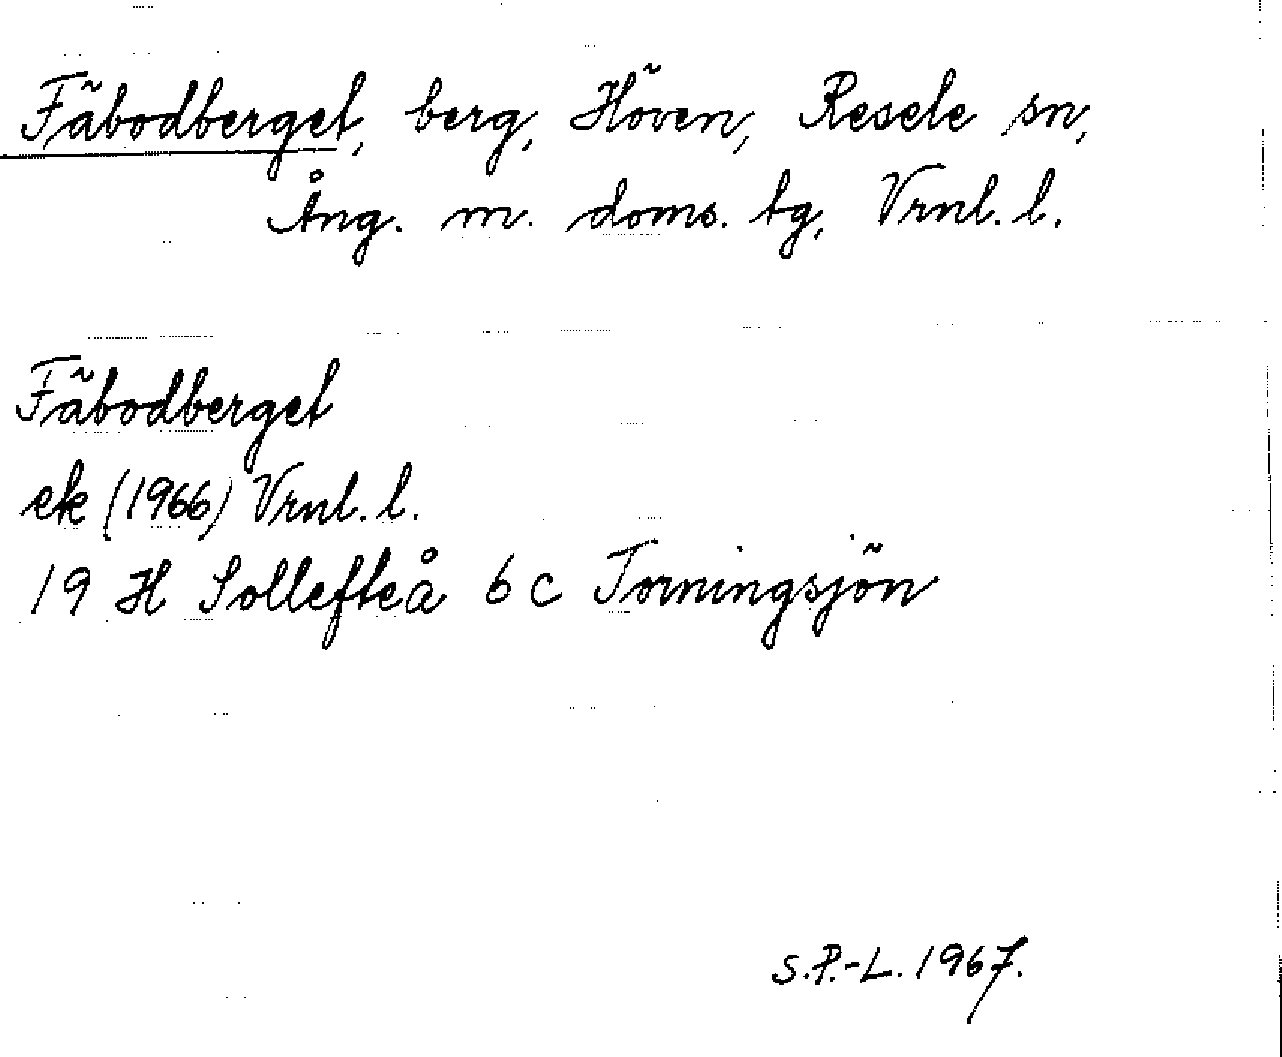 Fäbodberget, berg, Höven, Resele sn,
Ång. m. doms. tg, Vrnl. l.
Fäbodberget
ek (1966) Vrnl. l.
19 H Sollefteå 6 c Torningsjön
S.P.-L. 1967.